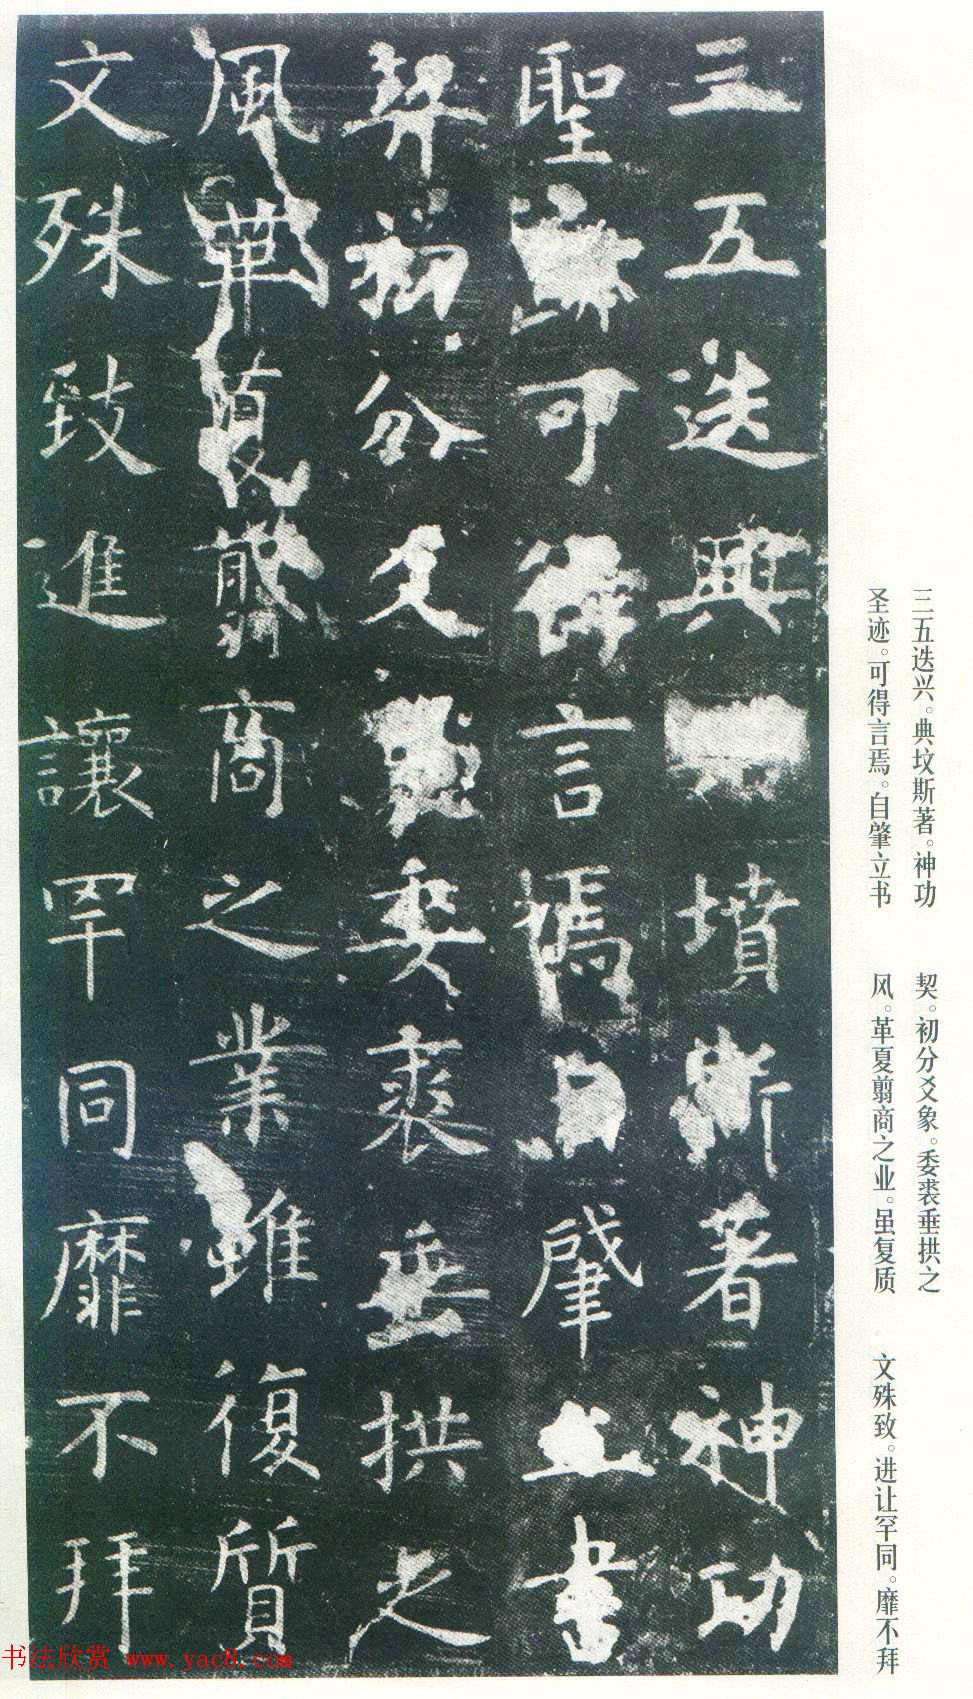 三五迭兴。典坟斯著。神功
圣迹。可得言焉。自肇立书
契。初分爻象。委裘垂拱之
风。革夏翦商之业。虽复质
文殊致。进让罕同。靡不拜
三五迭興墳斯著神功
聖可得言焉自肇立書
契初分爻象委裘垂拱之
風革夏翦商之業雖復質
文殊致進讓罕同靡不拜
书法欣赏 www.yac8.com